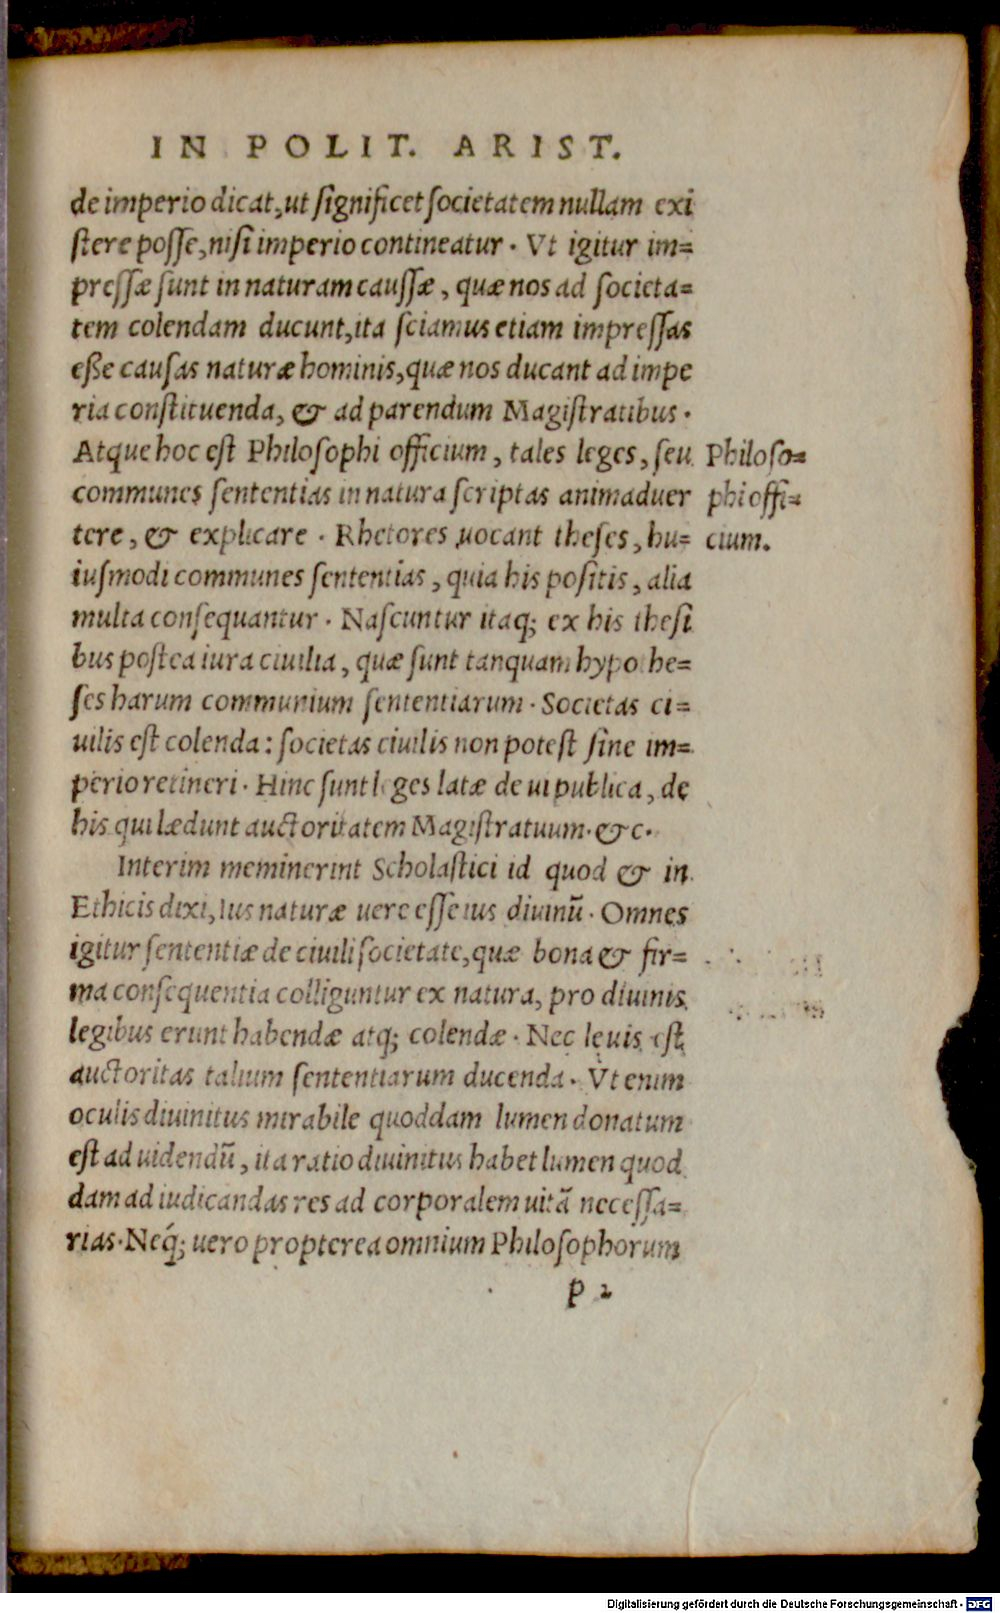 IN POLIT. ARIST.
de imperio dicat, ut significet societatem nullam exi
stere posse, nisi imperio contineatur. Vt igitur im=
pressæ sunt in naturam caussæ, quæ nos ad societa=
tem colendam ducunt, ita sciamus etiam impressas
eße causas naturæ hominis, quæ nos ducant ad impe
ria constituenda, & ad parendum Magistratibus.
Atque hoc est Philosophi officium, tales leges, seu
communes sententias in natura scriptas animaduer
tere, & explicare. Rhetores uocant theses, hu=
iusmodi communes sententias, quia his positis, alia
multa consequantur. Nascuntur itaq; ex his thesi
bus postea iura ciuilia, quæ sunt tanquam hypothe=
ses harum communium sententiarum. Societas ci=
uilis est colenda: societas ciuilis non potest sine im=
perio retineri. Hinc sunt leges latæ de ui publica, de
his qui lædunt auctoritatem Magistratuum. &c.
Interim meminerint Scholastici id quod & in
Ethicis dixi, Ius naturæ uere esse ius diuinũ. Omnes
igitur sententiæ de ciuili societate, quæ bona & fir=
ma consequentia colliguntur ex natura, pro diuinis
legibus erunt habendæ atq; colendæ. Nec leuis est
auctoritas talium sententiarum ducenda. Vt enim
oculis diuinitus mirabile quoddam lumen donatum
est ad uidendũ, ita ratio diuinitus habet lumen quod
dam ad iudicandas res ad corporalem uitã necessa=
rias. Neq́; uero propterea omnium Philosophorum
P 2
Philoso=
phi offi=
cium.
Digitalisierung gefördert durch die Deutsche Forschungsgemeinschaft - DFG